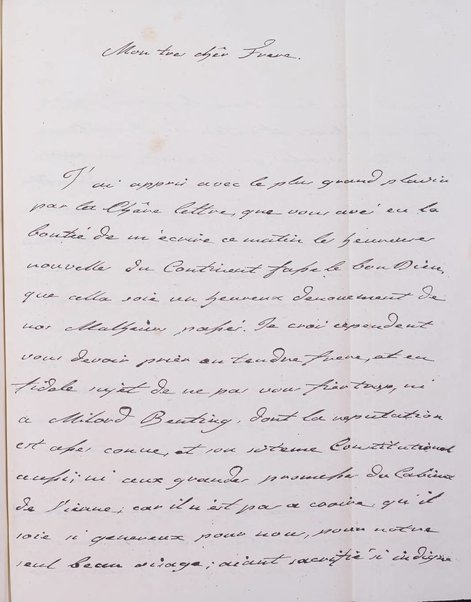 Mon tres chér Frere.
J'ai appris avec le plus grand plaisir
par la Chére lettre, que vous avé eu la
bontié de m'ecrire ce matin les heureuses
nouvelle du Continent fasse le bon Dieu,
que cella soie un heureux denouement de
nos Malheurs passés. Je croi cependent
vous devoir prier en tendre frere, et en
fidele sujet de ne pas vous fier trop, ni
a Milord Benting, dont la reputation
est asses conue, et son sisteme Constitutional
aussi; ni aux grandes promesse du Cabinet
de Vienne, car il n'est pas a croire, qu'il
soie si genereux pour nou, pour notre
seul beau visage; aiant sacrifié si indigne